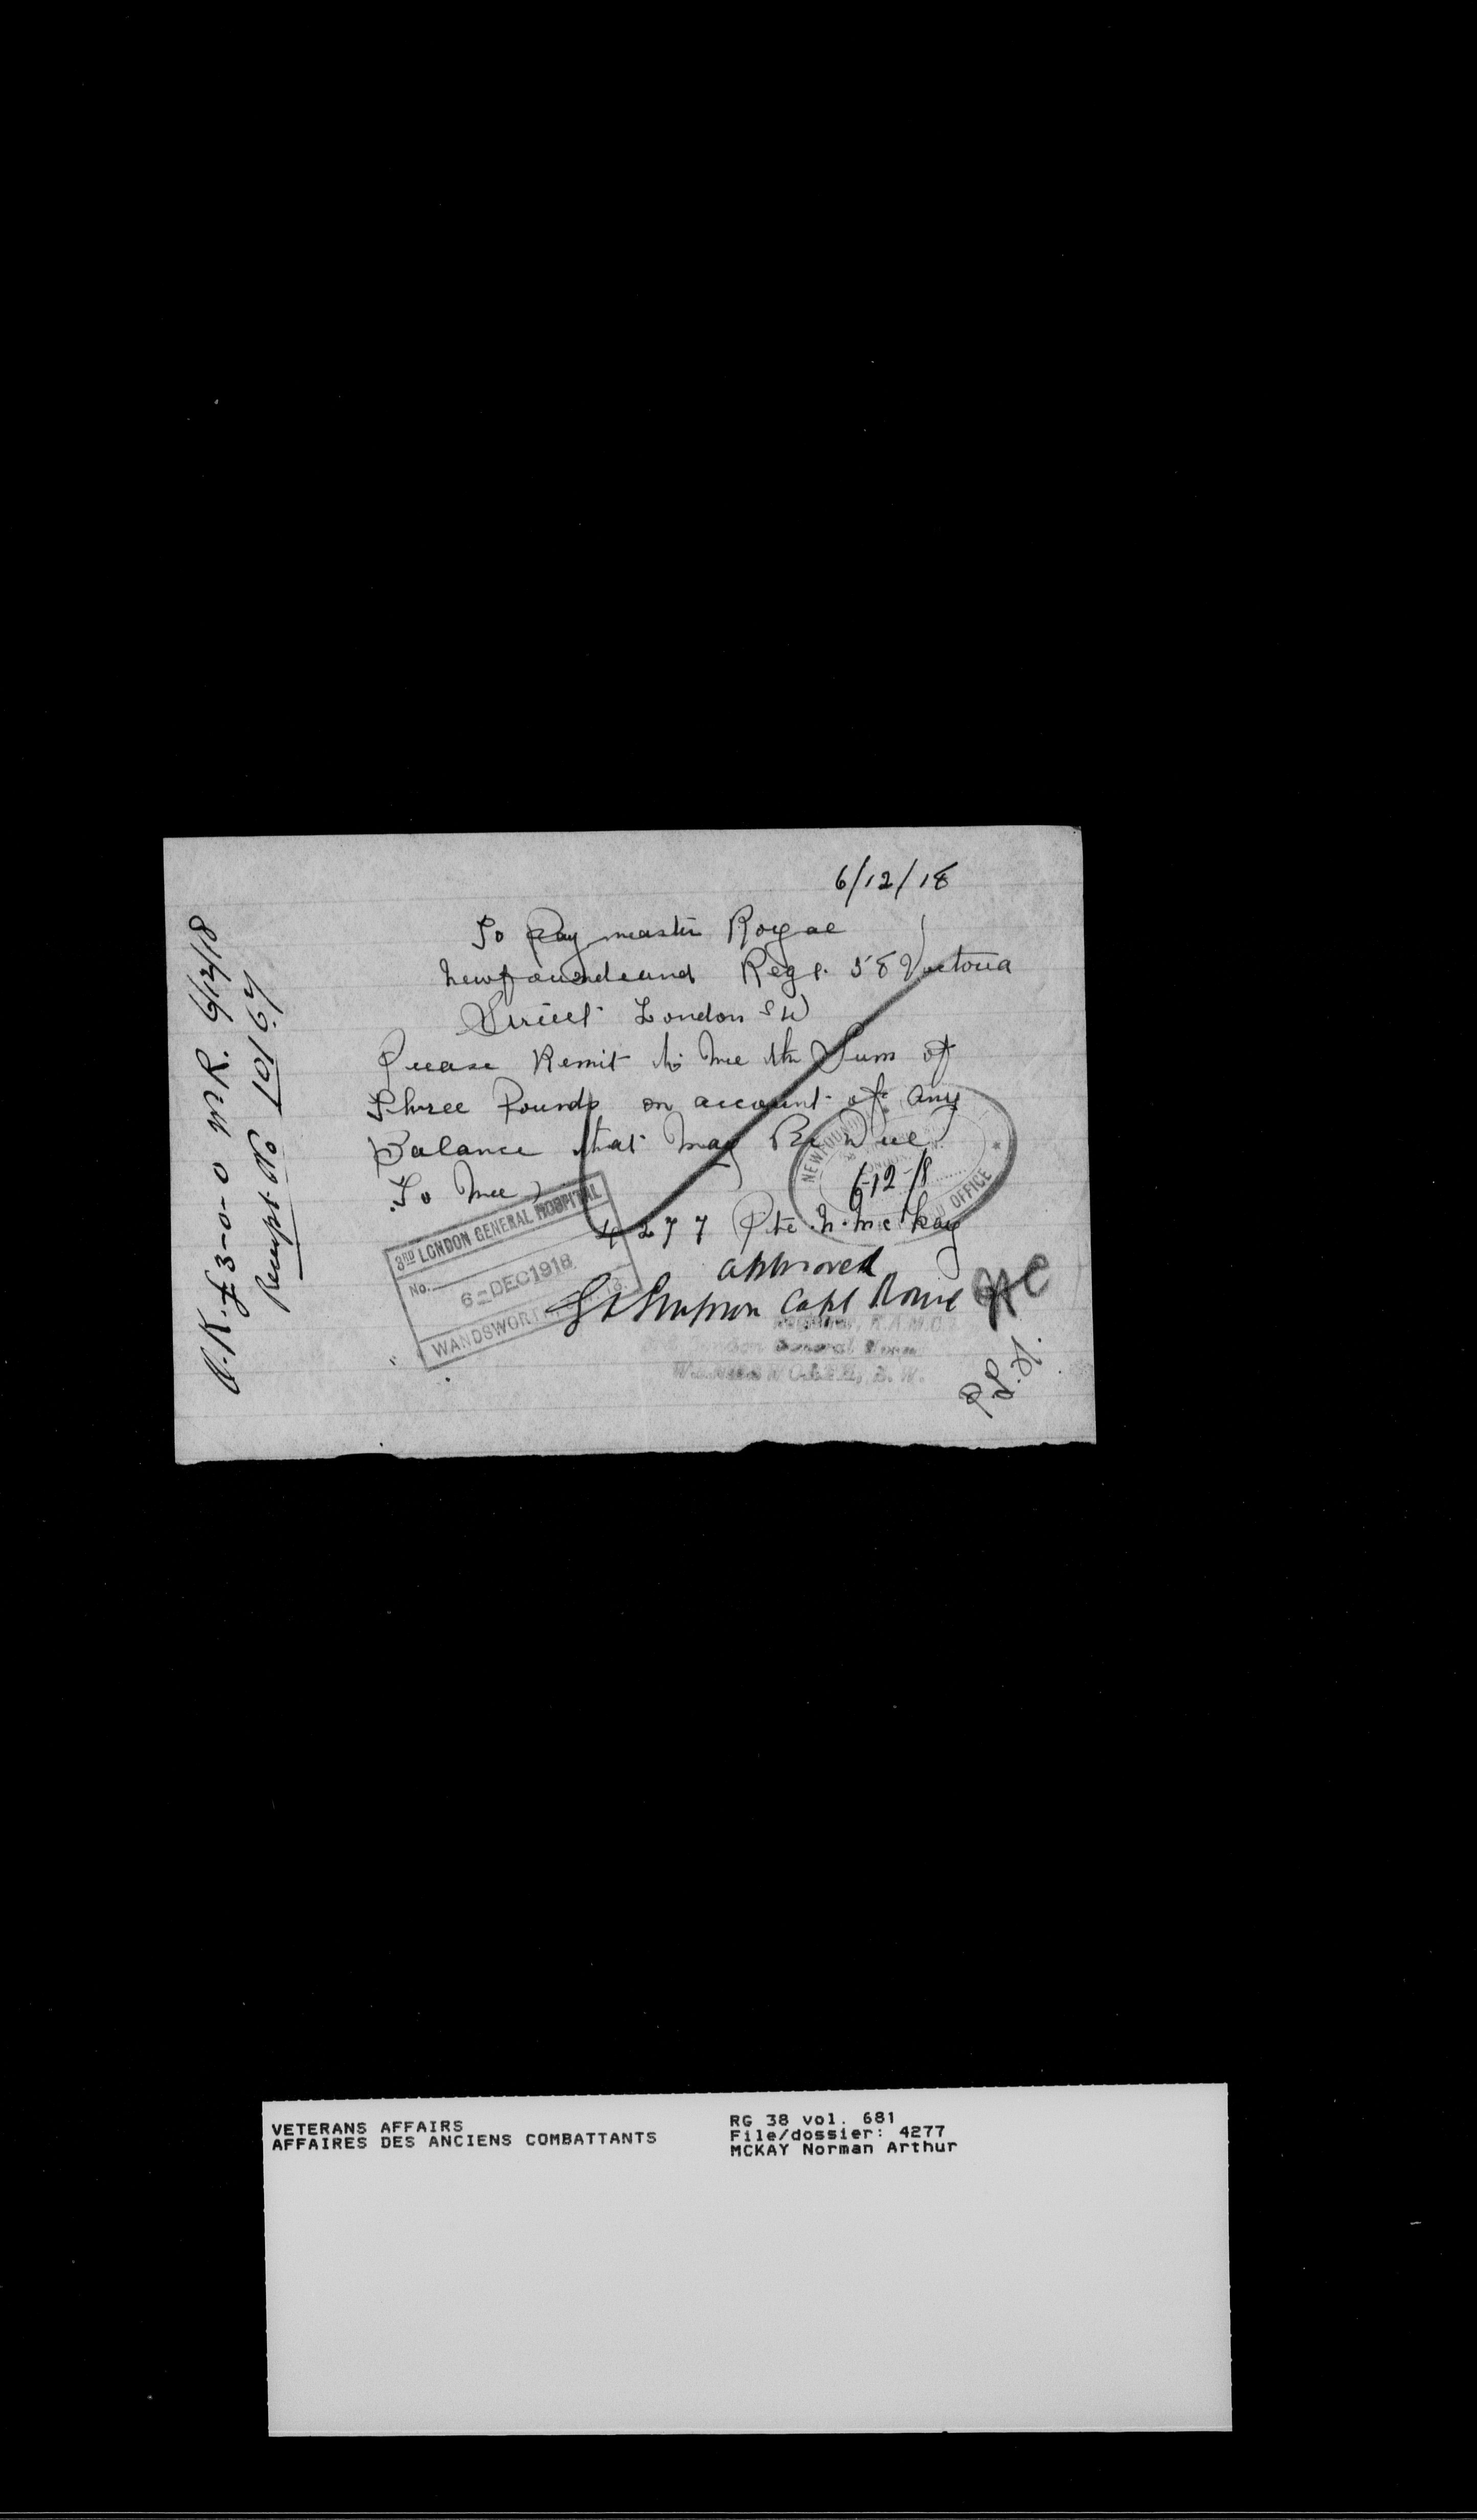 6/12/18
To Pay master Royal
Newfoundland Regt. 58 Victoria
Street London SW
Please Remit to Me the Sum of
Three Pounds on account of any
Balance that May Be Due
To Mee
4277 Pte. N. McKay
approved
Simpson Capt
O.K. £3-0-0 6/12/18
Receipt No 10167
3RD LONDON GENERAL HOSPITAL
No.
6 - DEC 1918
WANDSWORTH
NEWFOUND
OFFICE
6-12-18
R.A.M.C.
London General
WANDSWORTH, S.W.
VETERANS AFFAIRS
AFFAIRES DES ANCIENS COMBATTANTS
RG 38 vol. 681
File/dossier: 4277
MCKAY Norman Arthur